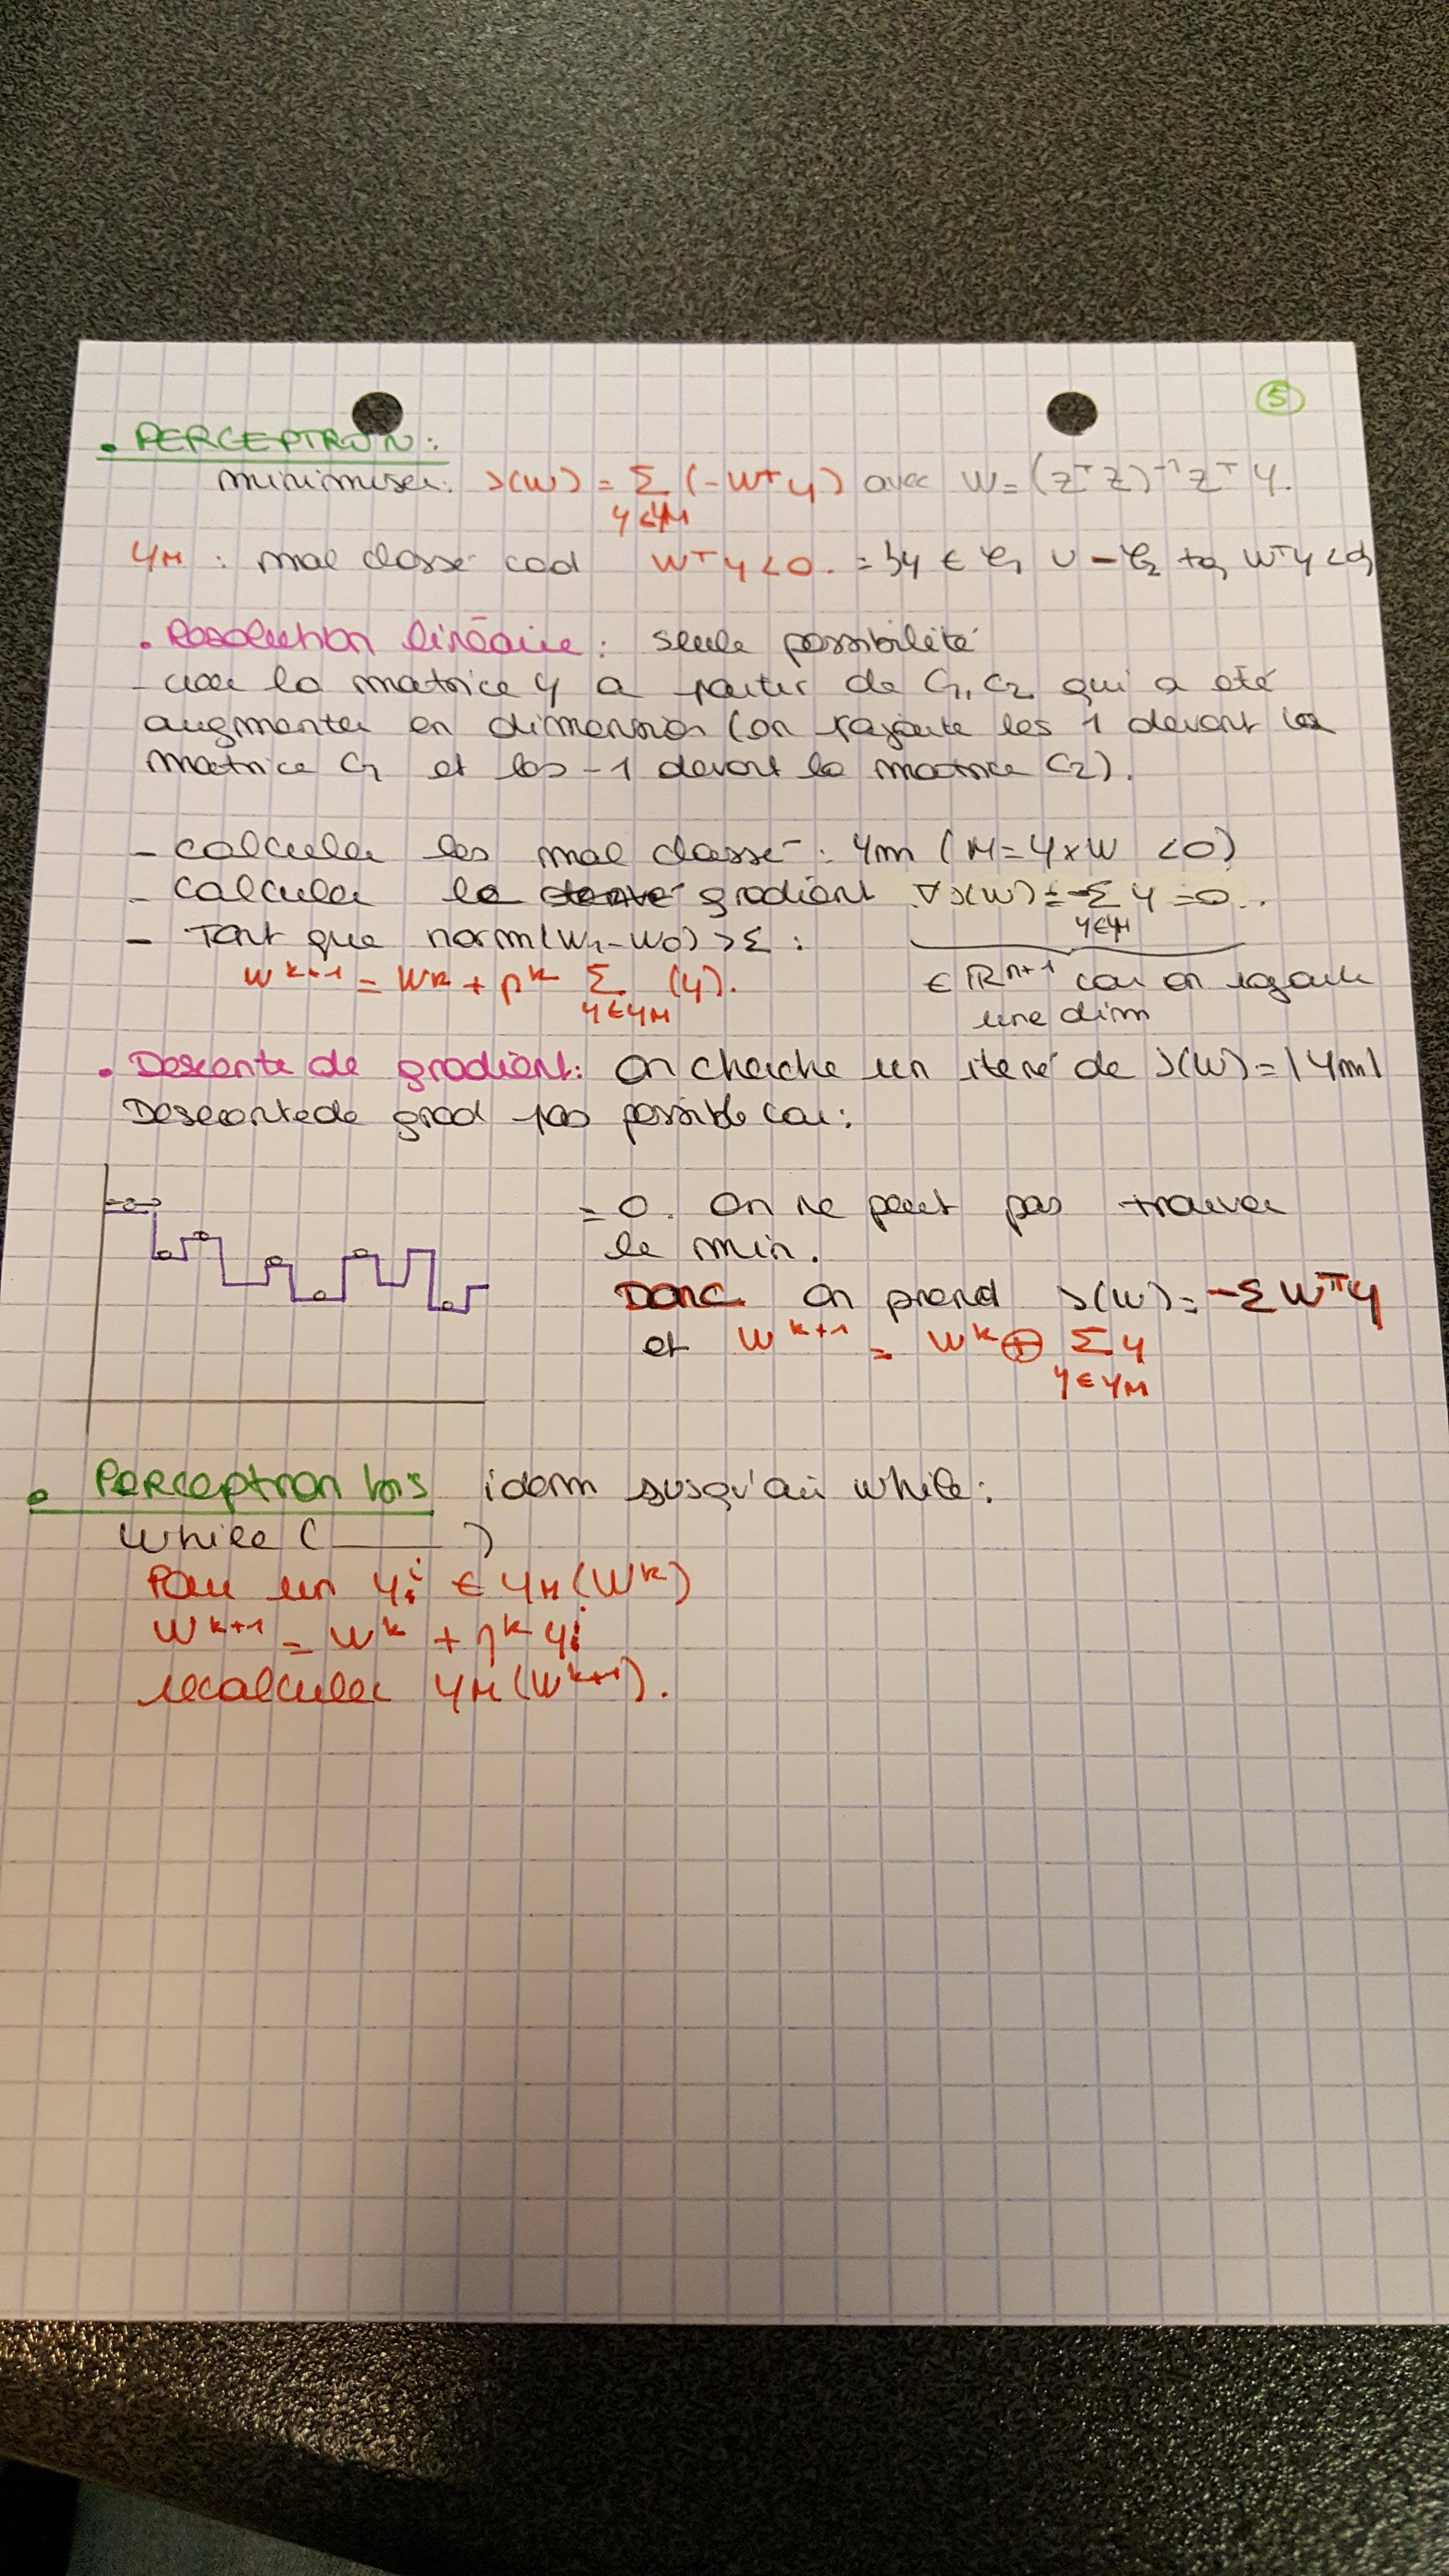 5
• PERCEPTRON:
minimiser: J(W) = Σ (-Wᵀy) avec W = (ZᵀZ)⁻¹ZᵀY.
y∈YM
YM : mal classé cad Wᵀy<0. = {y ∈ C1 ∪ -C2 tq Wᵀy<0}
• Résolution linéaire: seule possibilité
- créer la matrice Y a partir de C1, C2 qui a été
augmenter en dimension (on rajoute les 1 devant la
matrice C1 et les -1 devant la matrice C2).
- calculer les mal classé : Ym (M = Y×W <0)
- calculer le gradient ∇J(W) = -Σ y = 0.
y∈YM
- Tant que norm(W1-W0) > Σ :
∈ ℝⁿ⁺¹ car on rajoute
une dim
Wᵏ⁺¹ = Wᵏ + ηᵏ Σ (y).
y∈YM
• Descente de gradient: On cherche un itéré de J(W) = |Ym|
Descente de grad pas possible car:
= 0. On ne peut pas trouver
le min.
Donc on prend J(W) = -Σ Wᵀy
et Wᵏ⁺¹ = Wᵏ ⊕ Σ y
y∈YM
• Perceptron bis idem jusqu'au while:
While ( ____ )
Pour un yi ∈ YM(Wᵏ)
Wᵏ⁺¹ = Wᵏ + ηᵏ yi
recalculer YM(Wᵏ⁺¹).